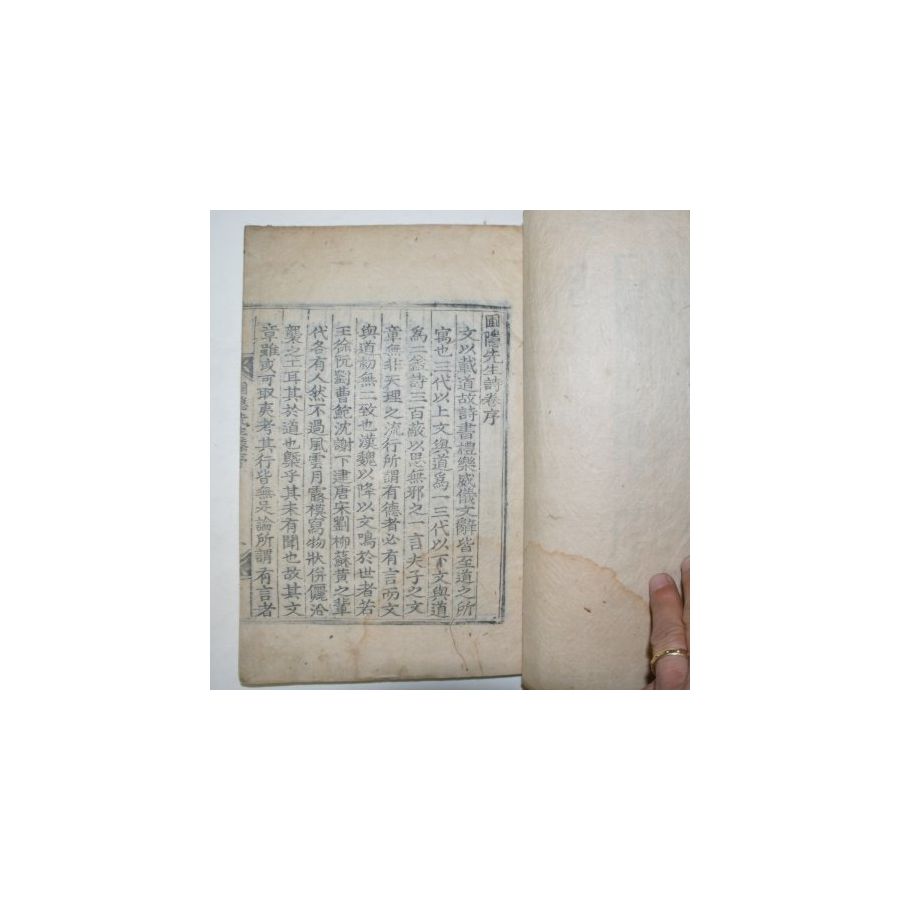 圃隱先生詩卷序
文以載道故詩書禮樂威儀文辭皆至道之所
寓也三代以上文與道爲一三代以下文與道
爲二盖詩三百蔽以思無邪之一言夫子之文
章無非天理之流行所謂有德者必有言而文
與道初無二致也漢魏以降以文鳴於世者若
王徐阮劉曹鮑沈謝下逮唐宋劉柳蘇黃之輩
代各有人然不過風雲月露模寫物狀倂儷治
襲之工耳其於道也槩乎其未有聞也故其文
章雖或可取夷考其行皆無足論所謂有言者
圃隱先生集序